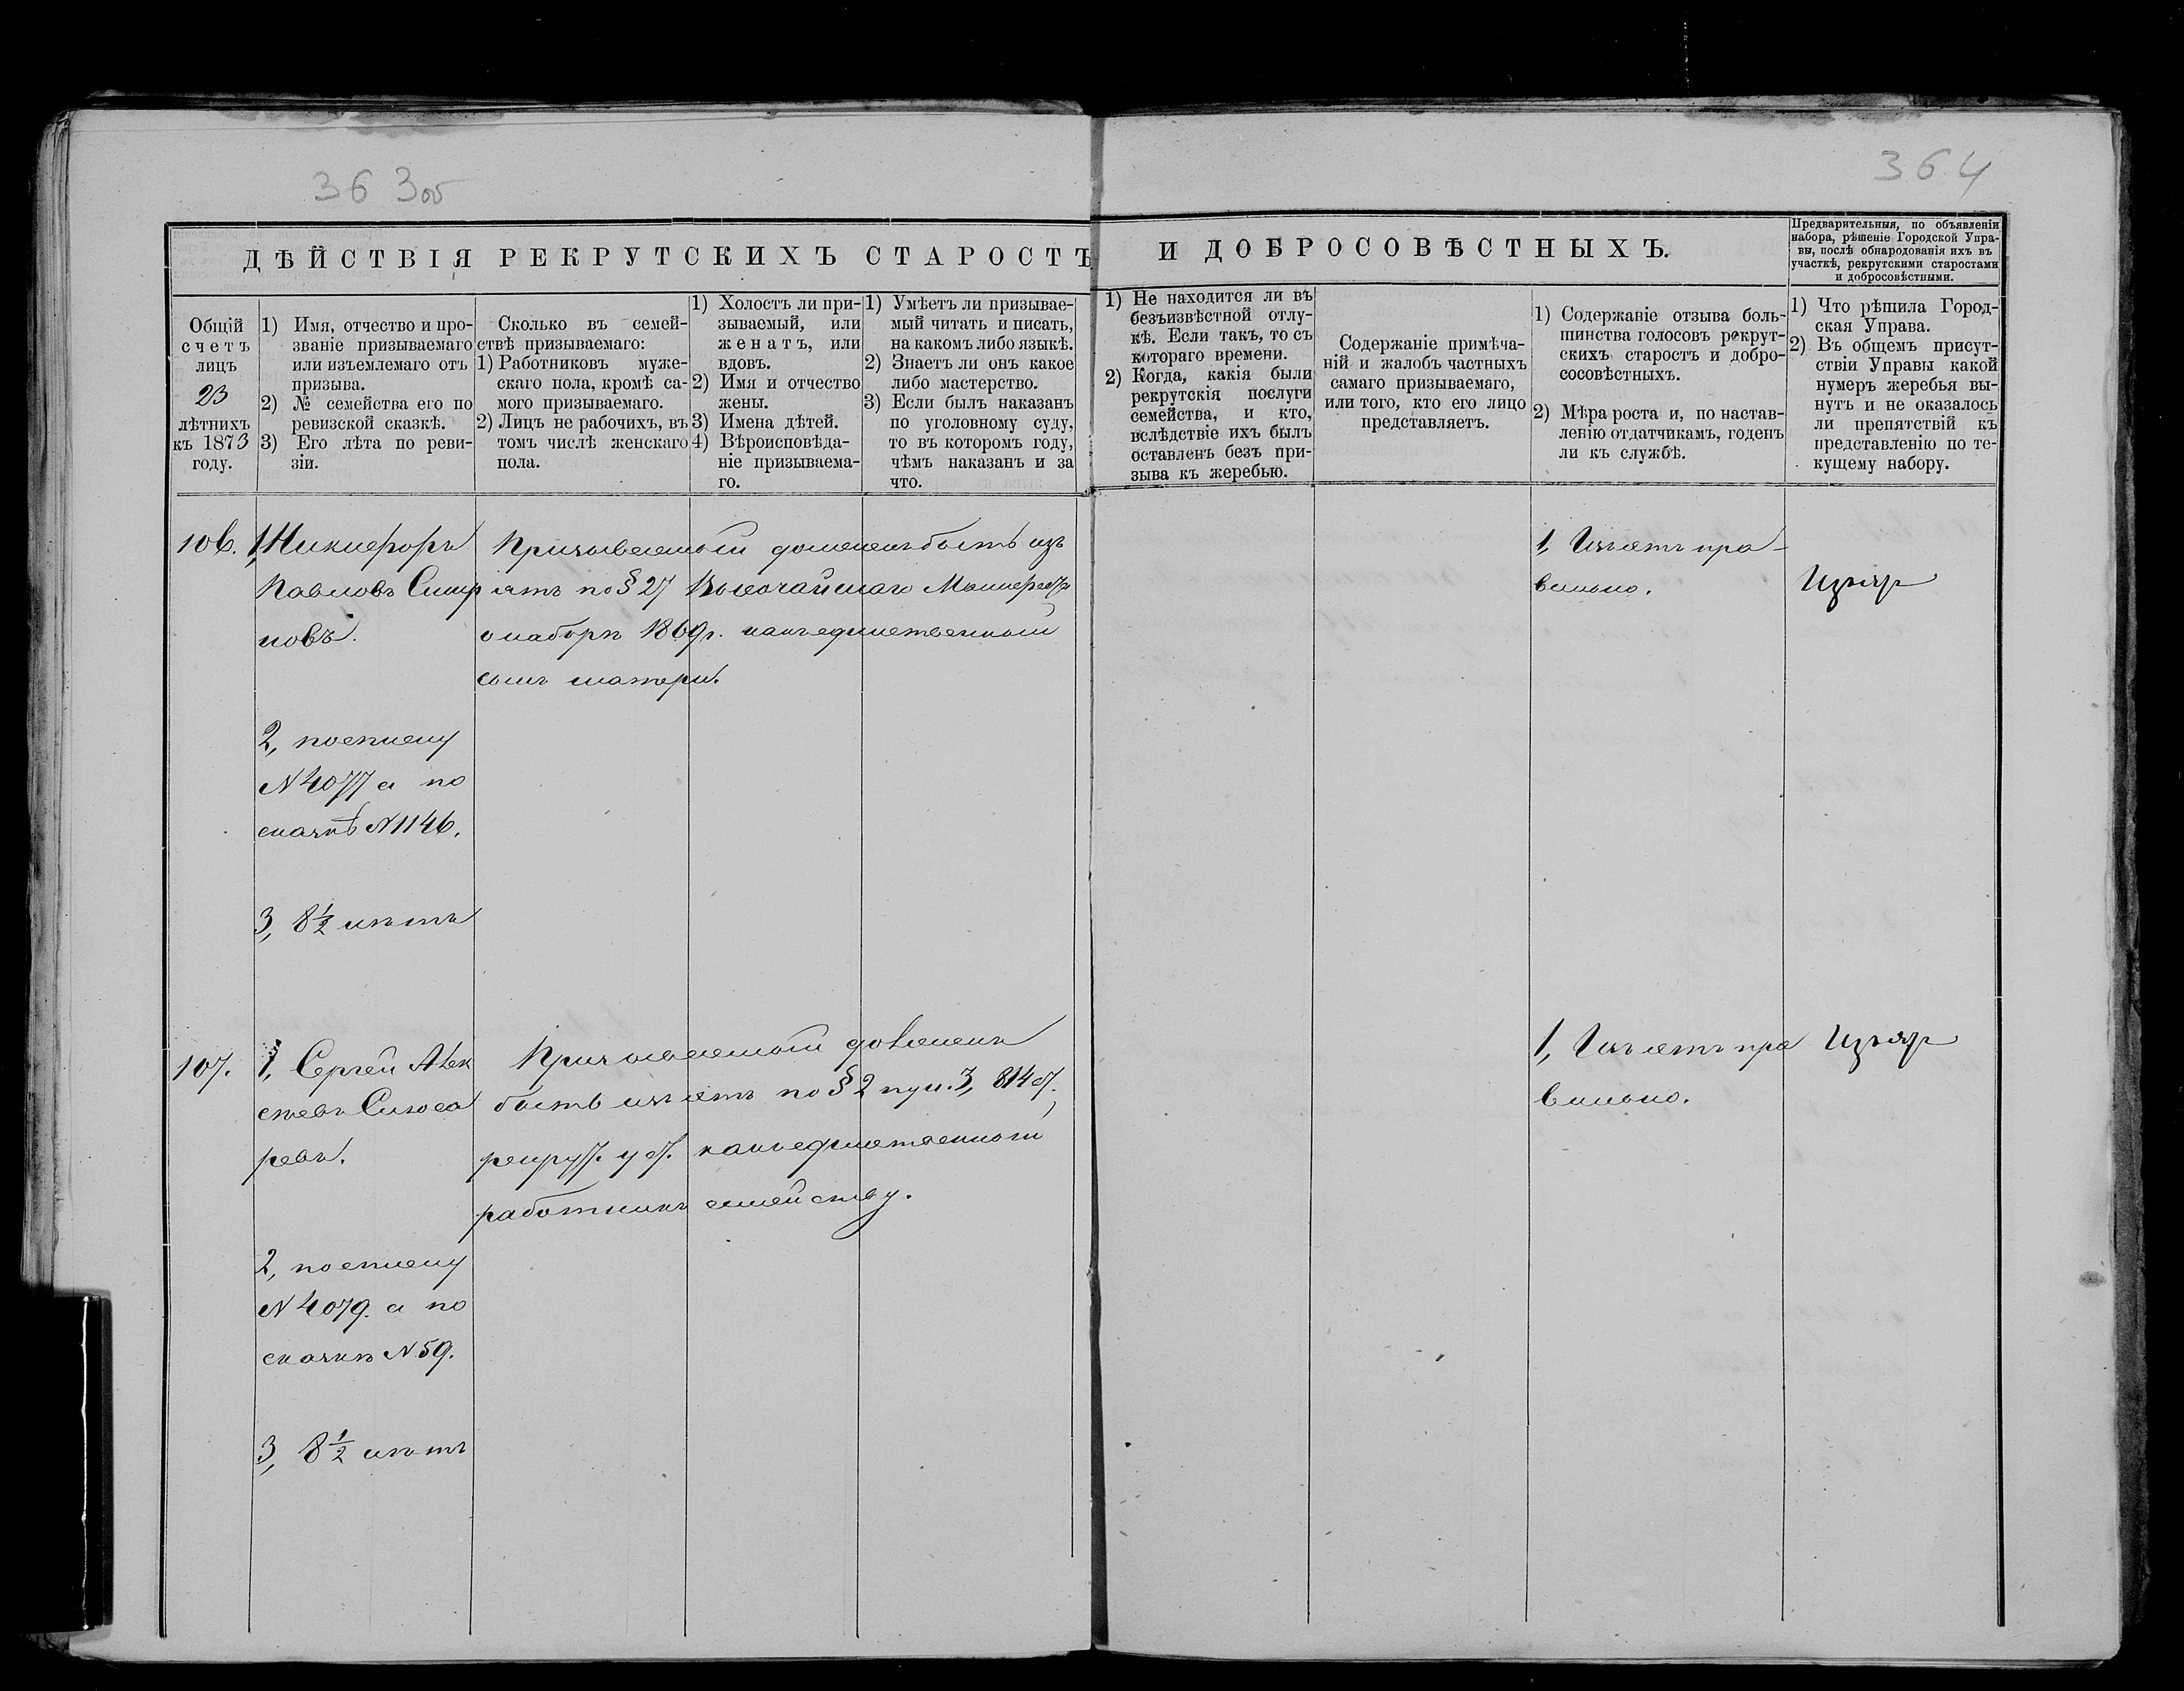 363 об
364
ДѢЙСТВІЯ РЕКРУТСКИХЪ СТАРОСТЪ И ДОБРОСОВѢСТНЫХЪ.
Предварительныя, по объявленіи
набора, рѣшеніе Городской Упра-
вы, послѣ обнародованія ихъ въ
участкѣ, рекрутскими старостами
и добросовѣстными.
Общій
счетъ
лицъ
23
лѣтнихъ
къ 1873
году.
1) Имя, отчество и про-
званіе призываемаго
или изъемлемаго отъ
призыва.
2) № семейства его по
ревизской сказкѣ.
3) Его лѣта по реви-
зіи.
Сколько въ семей-
ствѣ призываемаго:
1) Работниковъ муже-
скаго пола, кромѣ са-
мого призываемаго.
2) Лицъ не рабочихъ, въ
томъ числѣ женскаго
пола.
1) Холостъ ли при-
зываемый, или
женатъ, или
вдовъ.
2) Имя и отчество
жены.
3) Имена дѣтей.
4) Вѣроисповѣда-
ніе призываема-
го.
1) Умѣетъ ли призывае-
мый читать и писать,
на какомъ либо языкѣ.
2) Знаетъ ли онъ какое
либо мастерство.
3) Если былъ наказанъ
по уголовному суду,
то въ которомъ году,
чѣмъ наказанъ и за
что.
1) Не находится ли въ
безъизвѣстной отлу-
кѣ. Если такъ, то съ
котораго времени.
2) Когда, какія были
рекрутскія послуги
семейства, и кто,
вслѣдствіе ихъ былъ
оставленъ безъ при-
зыва къ жеребью.
Содержаніе примѣча-
ній и жалобъ частныхъ
самаго призываемаго,
или того, кто его лицо
представляетъ.
1) Содержаніе отзыва боль-
шинства голосовъ рекрут-
скихъ старостъ и добро-
сосовѣстныхъ.
2) Мѣра роста и, по настав-
ленію отдатчикамъ, годенъ
ли къ службѣ.
1) Что рѣшила Город-
ская Управа.
2) Въ общемъ присут-
ствіи Управы какой
нумеръ жеребья вы-
нутъ и не оказалось
ли препятствій къ
представленію по те-
кущему набору.
106.
1, Никифоръ
Павловъ Смир
новъ.
2, по списку
N 4077 а по
сказкѣ N 1146.
3, 8½ лѣтъ
Призываемый долженъ быть изъ
ятъ по § 27 Высочайшаго Манифеста
о наборѣ 1869 г. какъ единственный
сынъ матери.
1, Изъятъ пра-
вильно.
107.
1, Сергей Алек
сѣевъ Слюса
ревъ.
2, по списку
N 4079. а по
сказкѣ N 59.
3, 8½ лѣтъ
Призываемый долженъ
быть изъятъ по § 2 пун. 3, 814 ст.
рекрут. уст. какъ единственный
работникъ семейству.
1, Изъятъ пра
вильно.